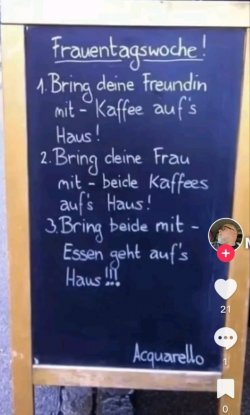 Frauentagswoche!
1. Bring deine Freundin
mit - Kaffee auf's
Haus!
2. Bring deine Frau
mit - beide Kaffees
auf's Haus!
3. Bring beide mit -
Essen geht auf's
Haus!!!
Acquarello
21
1